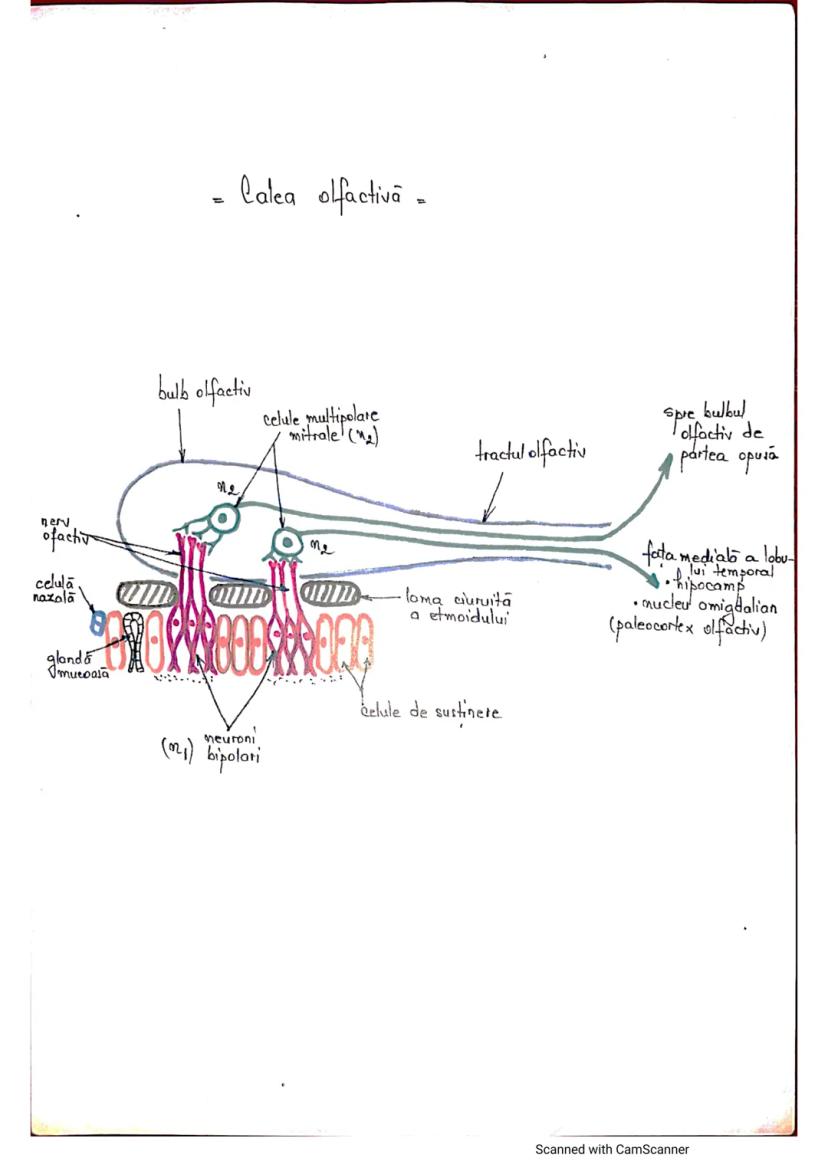 = Calea olfactivă =
bulb olfactiv
celule multipolare
mitrale (n2)
tractul olfactiv
spre bulbul
olfactiv de
partea opusă
n2
n2
nerv
ofactiv
celulă
nazală
glandă
mucoasă
lama ciuruită
a etmoidului
fața medială a lobu-
lui temporal
• hipocamp
• nucleu amigdalian
(paleocortex olfactiv)
celule de susținere
(n1) neuroni
bipolari
Scanned with CamScanner